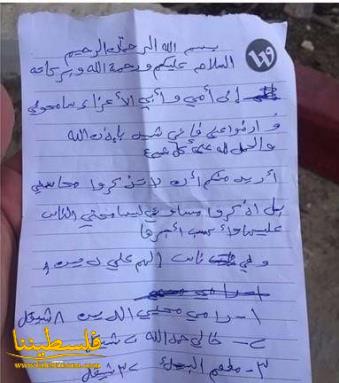 بسم الله الرحمن الرحيم
السلام عليكم ورحمة الله وبركاته
إلى أمي وأبي الأعزاء سامحوني
وارضوا عني فاني شهيد بإذن الله
والحمد لله على كل شيء
أريد منكم أن لا تذكروا محاسني
بل اذكروا مساوئي ليسامحني الناس
عليها
وفي ناس الهم علي ديون
١- رامي الدين ٨ شيكل
٢- خالي عبد الله شيكل
٣- مطعم ٣٠ شيكل
فلسطيننا